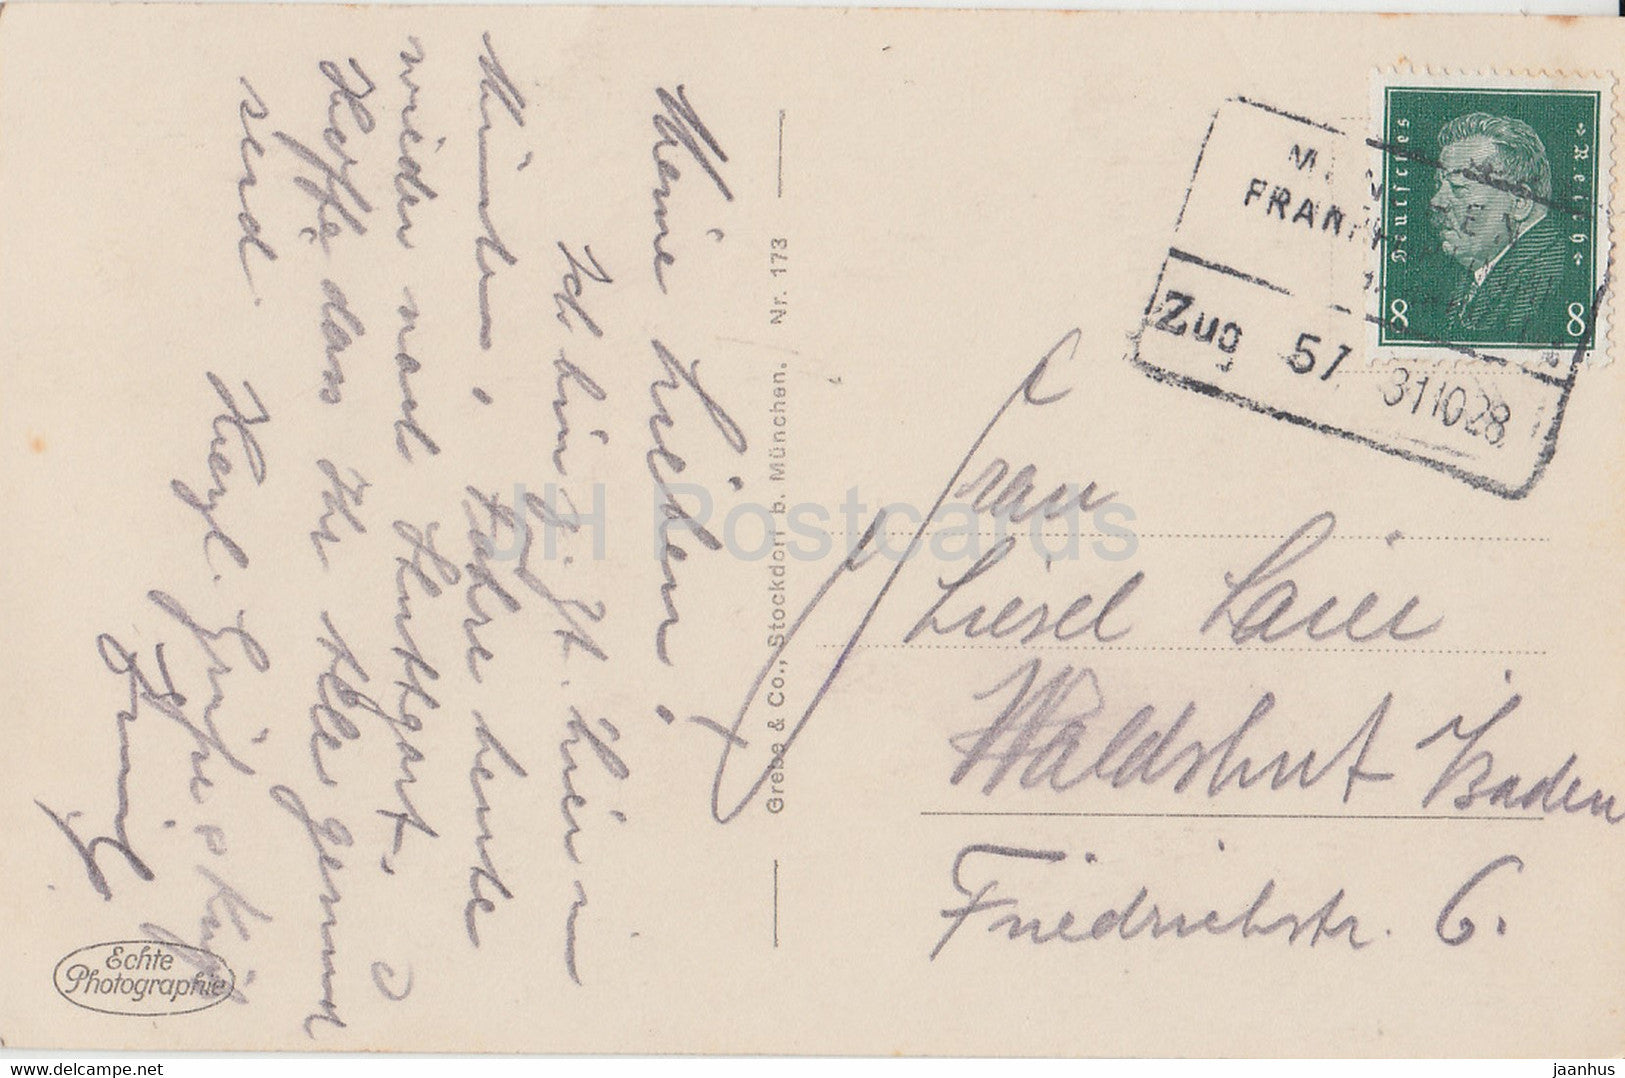 Meine Lieben!
Ich bin z. Zt. hier in
München, fahre heute
wieder nach Stuttgart.
Hoffe dass Ihr Alle gesund
seid.
Herzl. Grüße &
Echte
Photographie
Grebe & Co., Stockdorf b. München. Nr. 173
Deutsches Reich
8 8
FRANKF
Zug 57 311028
Frau
Liesel Laier
Waldshut / Baden
Friedrichstr. 6.
JH Postcards
www.delcampe.net
jaanhus